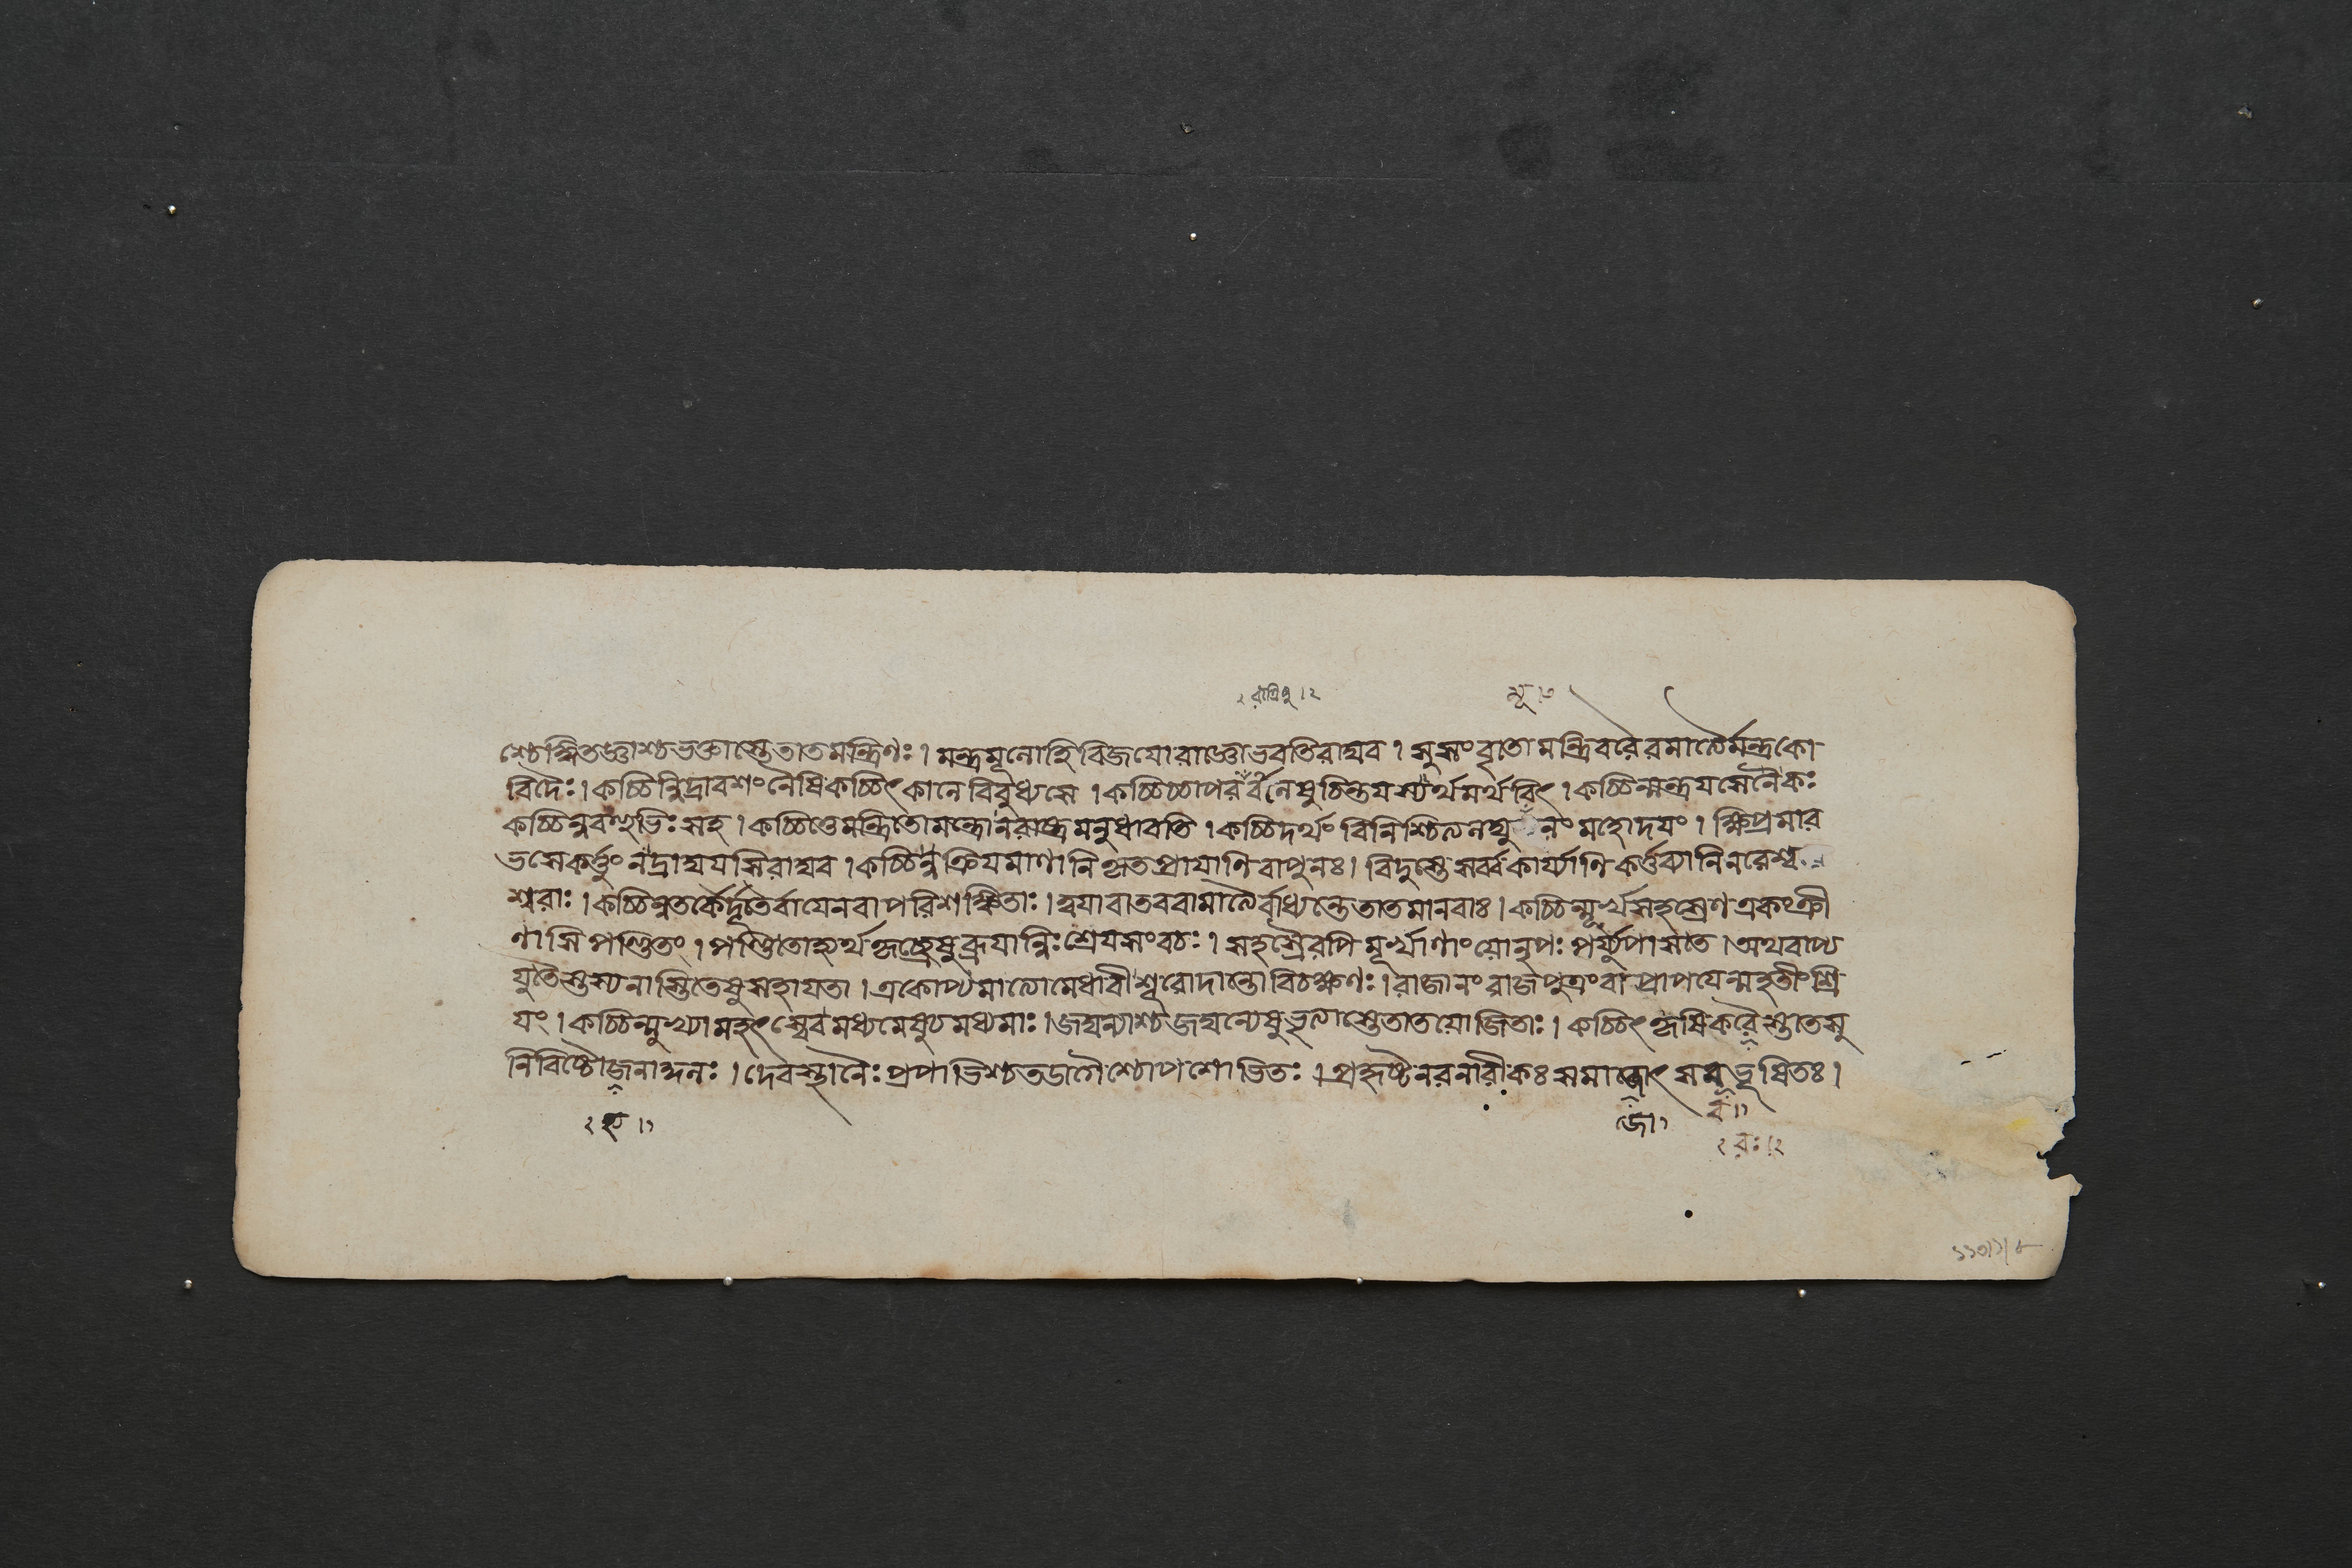 ২ রাত্রিষু ।২
মূ ।৩
শ্চেঙ্গিতজ্ঞাশ্চভক্তাস্তেতাতমন্ত্রিণঃ । মন্ত্রমূলোহিবিজযোরাজ্ঞোভবতিরাঘব । সুসংবৃতোমন্ত্রিবরৈরমাত্যৈর্মন্ত্রকো
বিদৈঃ । কচ্চিন্নিদ্রাবশংনৈষিকচ্চিৎকালেবিবুধ্যসে । কচ্চিচ্চাপররাত্রেষুচিন্তযস্যর্থমর্থবিৎ । কচ্চিন্মন্ত্রযসেনৈকঃ
কচ্চিন্নবহুভিঃসহ । কচ্চিত্তেমন্ত্রিতোমন্ত্রোনরাষ্ট্রমনুধাবতি । কচ্চিদর্থং বিনিশ্চিত্যলঘু নং মহোদযং । ক্ষিপ্রমার
ভসেকর্ত্তুংনদ্রাঘযসিরাঘব । কচ্চিন্নুক্রিযমাণানিকৃতপ্রাযাণিবাপুনঃ । বিদুস্তেসর্ব্বকার্য্যাণিকর্ত্তব্যানিনরেশ্ব
শ্বরাঃ । কচ্চিন্নতর্কৈর্দূতৈর্বাযেনবাপরিশঙ্কিতাঃ । ত্বযাবাতববামাত্যৈর্বাধ্যন্তেতাতমানবাঃ । কচ্চিন্মূর্খসহস্রেণএকংক্রী
ণাসিপণ্ডিতং । পণ্ডিতোহ্যর্থকৃচ্ছ্রেষুব্রূযান্নিঃশ্রেযসংবচঃ । সহস্রৈরপিমূর্খাণাংযোনৃপঃপর্য্যুপাসতে । অথবাপ্য
যুতৈস্তস্যনাস্তিতেষুসহাযতা । একোপ্যমাত্যোমেধাবীশূরোদান্তোবিচক্ষণঃ । রাজানংরাজপুত্রংবাপ্রাপযেন্মহতীংশ্রি
যং । কচ্চিন্মুখ্যামহৎস্বেবমধ্যমেষুচমধ্যমাঃ । জঘন্যাশ্চজঘন্যেষুভৃত্যাস্তেতাতযোজিতাঃ । কচ্চিৎকৃষিকরৈস্তাতসু
নিবিষ্টৌজনার্দ্দনঃ । দেবস্থানৈঃপ্রপাভিশ্চতডাগৈশ্চোপশোভিতঃ । প্রহৃষ্টনরনারীকঃসমাজোৎসবভূষিতঃ ।
জো১
ব ॥১
২ রঃ ।২